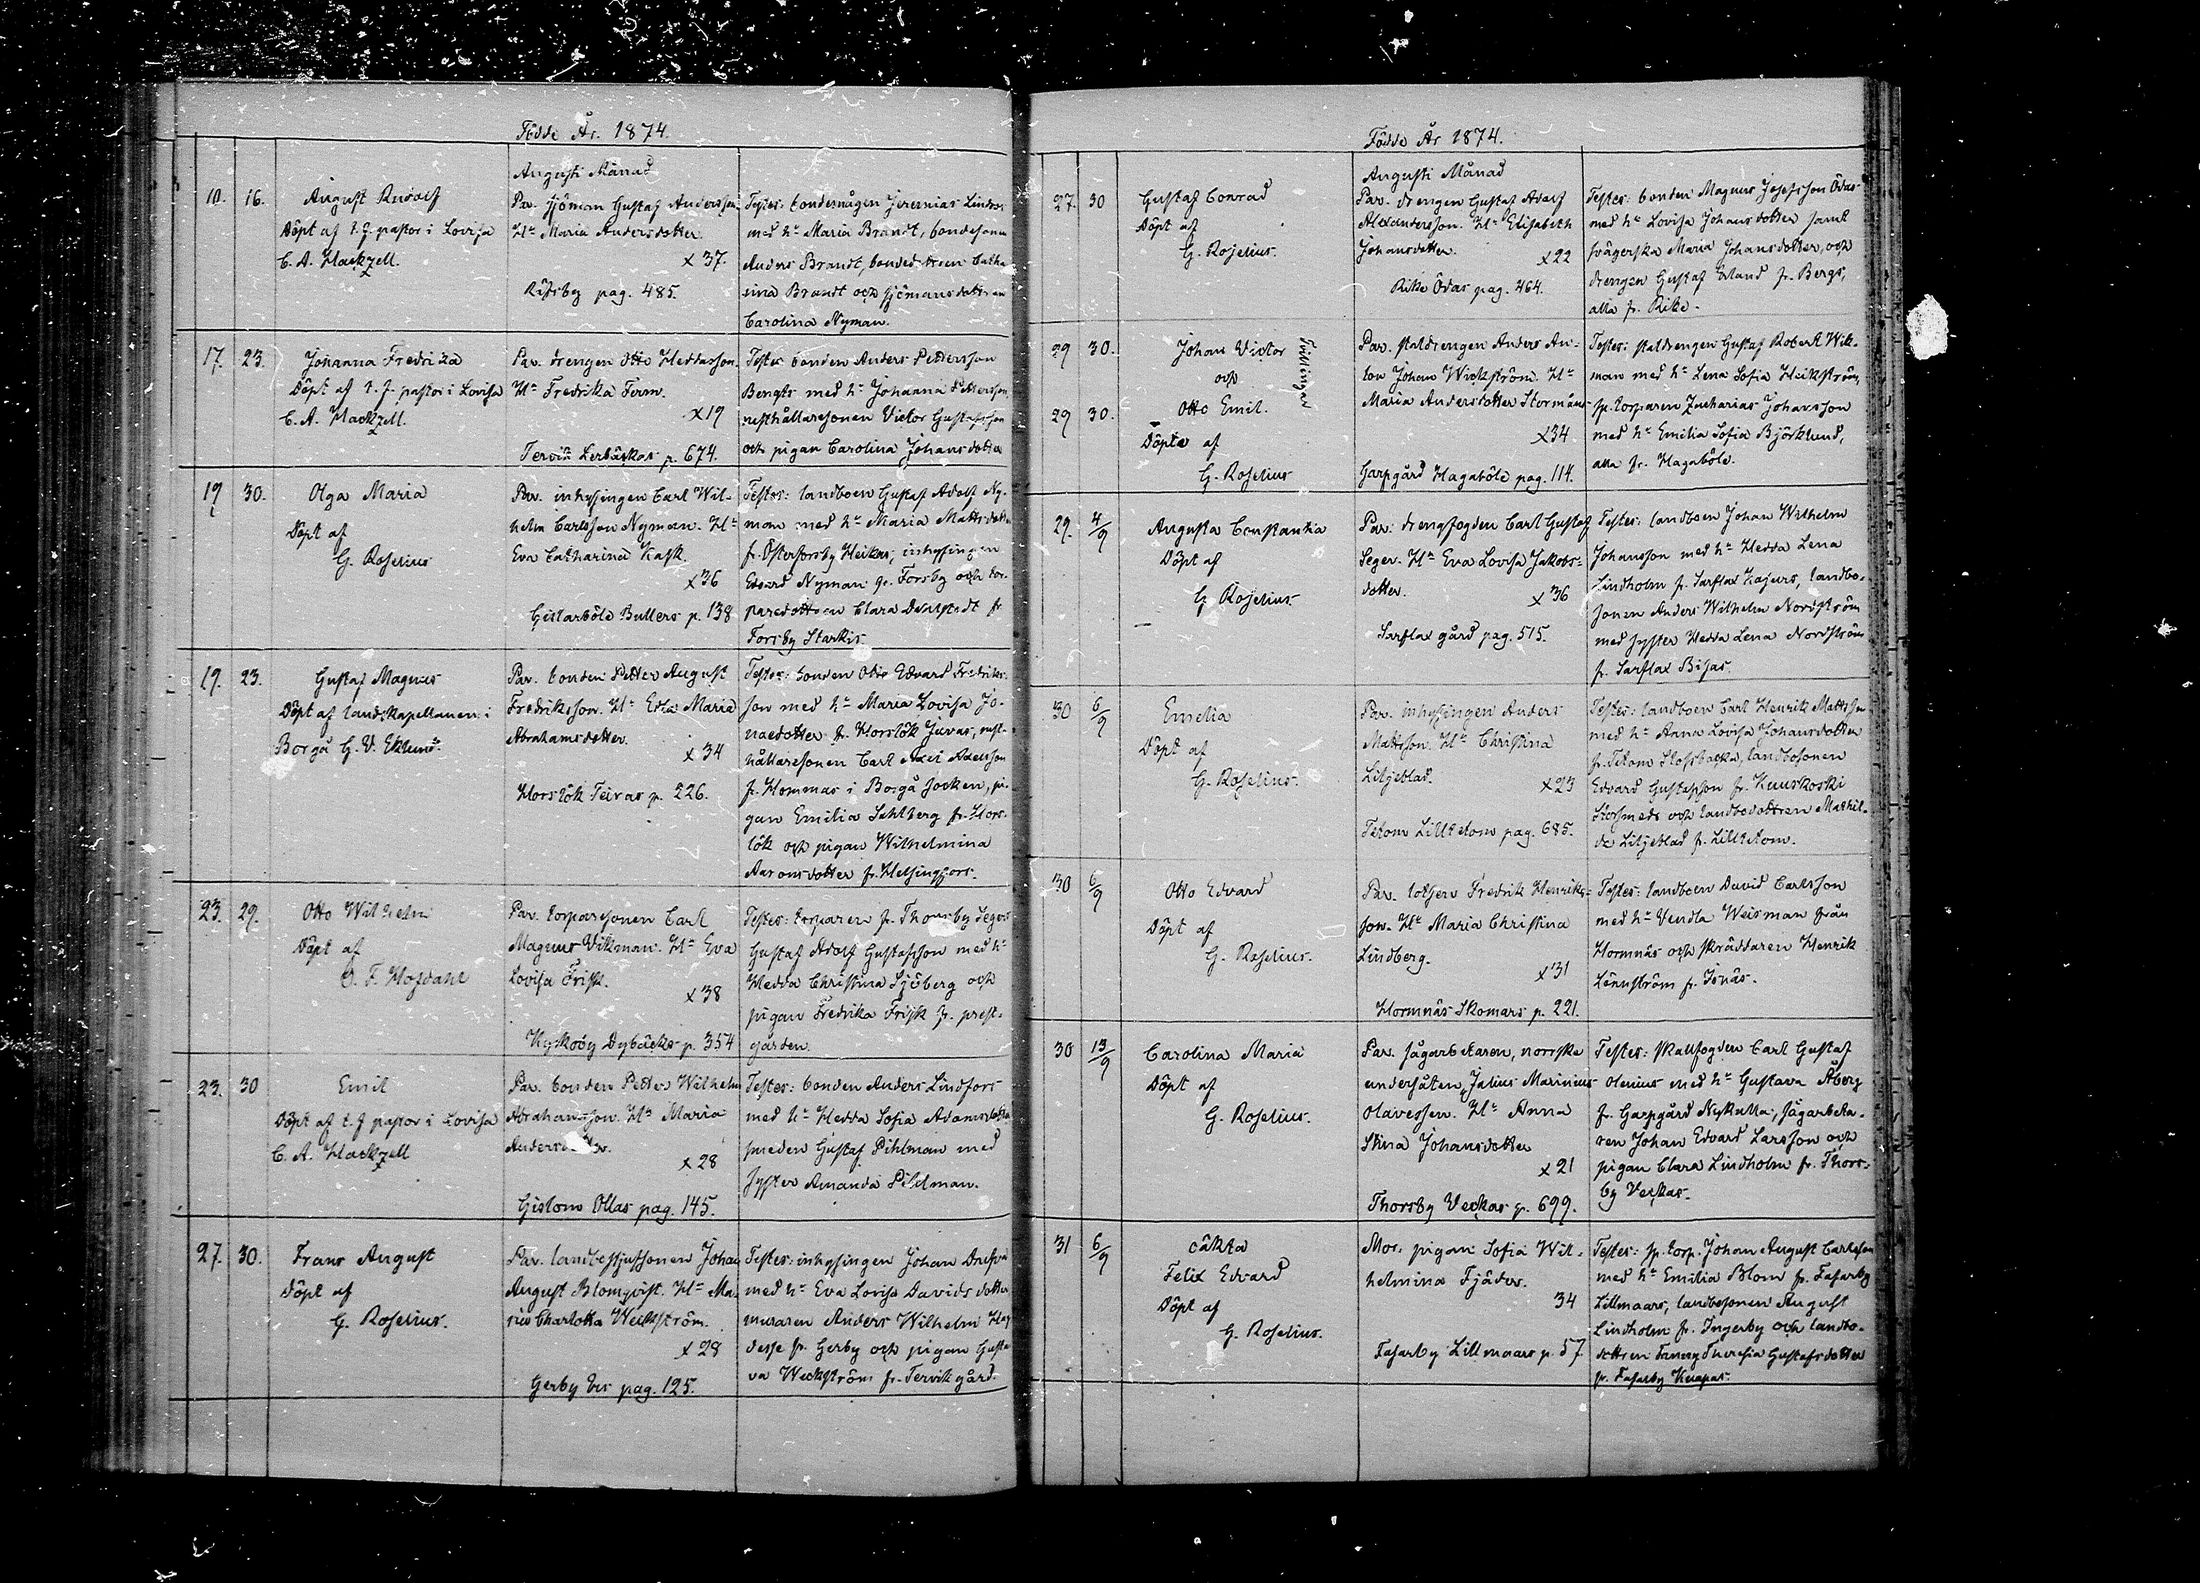 Födde År. 1874.
Augusti Månad
10. 16. August Rudolf
Döpt af t. f. pastor i Lovisa
C. A. Hackzell.
Par. sjöman Gustaf Andersson.
H:u Maria Andersdotter
x 37.
Räfsby pag. 485.
Testes: bondemågen Jeremias Lindros
med h:u Maria Brandt, bondesonen
Anders Brandt, bondedottren Catha
rina Brandt och sjömansdottren
Carolina Nyman.
17. 23. Johanna Fredrika
Döpt af t. f. pastor i Lovisa
C. A. Hackzell.
Par. drengen Otto Heddasson.
H:u Fredrika Form.
x 19
Tervik Lerbäckas p. 674.
Testes bonden Anders Pettersson
Bengts med h:u Johanna Pettersson
rusthållaresonen Victor Gustafsson
och pigan Carolina Johansdotter
19 30. Olga Maria
Döpt af
G. Roselius
Par. inhysingen Carl Wil-
helm Carlsson Nyman. H:u
Eva Catharina Kask.
x 36
Gislarböle Bullers p. 138
Testes: landboen Gustaf Adolf Ny-
man med h:u Maria Mattsdotter
fr. Österforsby Heikas, inhysingen
Edvard Nyman fr. Forsby och tor-
paredottren Clara fr
Forsby Starkis.
19. 23. Gustaf Magnus
Döpt af landskapellanen i
Borgå G. V. Eklund.
Par. bonden Petter August
Fredriksson. H:u Edla Maria
Abrahamsdotter.
x 34
Horslök Teiras p. 226.
Testes: bonden Otto Edvard Fredriks-
son med h:u Maria Lovisa Jo-
nasdotter fr. Horslök Juvas, rust-
hållaresonen Carl Axel Axelsson
fr. Hommas i Borgå socken, pi-
gan Emilia Sahlberg fr. Hors-
lök och pigan Wilhelmina
Aaronsdotter fr. Helsingfors.
23. 29. Otto Wilhelm
Döpt af
O. F. Hofdahl
Par. torparesonen Carl
Magnus Vikman. H:u Eva
Lovisa Frisk.
x 38
Kyrkoby Dybäcks p. 354
Testes: torparen fr. Thorsby Segers
Gustaf Adolf Gustafsson med h:u
Hedda Christina Sjöberg och
pigan Fredrika Frisk fr. prest-
gården.
23. 30 Emil
Döpt af t. f pastor i Lovisa
C. A. Hackzell
Par. bonden Petter Wilhelm
Abrahamsson. H:u Maria
x 28
Gislom Ollas pag. 145.
Testes: bonden Anders Lindfors
med h:u Hedda Sofia Adamsdotter
smeden Gustaf Pihlman med
syster Amanda Pihlman.
27. 30. Frans August
Döpt af
G. Roselius.
Par. Johan
August Blomqvist. H:u Ma-
ria Charlotta Weckström.
x 28
Gerby Ers pag. 125.
Testes: inhysingen Johan
med h:u Eva Lovisa Davidsdotter
muraren Anders Wilhelm
fr. Gerby och pigan Gusta
va Weckström fr. Tervik gård.
Födde År 1874.
Augusti Månad
27. 30 Gustaf Conrad
Döpt af
G. Roselius.
Par. drengen Gustaf Adolf
Alexandersson. H:u Elisabeth
Johansdotter.
x 22
Rike Ödas pag. 464.
Testes: bonden Magnus Josefsson Ödas
med h:u Lovisa Johansdotter samt
svägerska Maria Johansdotter, och
drengen Gustaf Erland fr. Bergs,
alla fr. Rike.
29 30. Johan Victor
och
29 30. Otto Emil.
Tvillingar
Döpte af
G. Roselius
Par. staldrengen Anders An-
ton Johan Wickström. H:u
Maria Andersdotter Stormåns
x 34
Garpgård Hagaböle pag. 114.
Testes: staldrengen Gustaf Robert Wik-
man med h:u Lena Sofia Heikström,
sp. torparen Zacharias Johansson
med h:u Emilia Sofia Björklund,
alla fr. Hagaböle.
29. 4/9 Augusta Constantia
Döpt af
G Roselius.
Par: drengfogden Carl Gustaf
Seger. H:u Eva Lovisa Jakobs-
dotter.
x 36
Sarflax gård pag. 515.
Testes: landboen Johan Wilhelm
Johansson med h:u Hedda Lena
Lindholm fr. Sarflax Kajurs, landbo-
sonen Anders Wilhelm Nordström
med syster Hedda Lena Nordström
fr. Sarflax Bisas.
30 6/9 Emelia
Döpt af
G. Roselius.
Par. inhysingen Anders
Mattsson. H:u Christina
Liljeblad.
x 23
Tetom Lilltetom pag. 685.
Testes: landboen Carl Henrik Mattsson
med h:u Anna Lovisa Johansdotter
fr. Tetom landbosonen
Edvard Gustafsson fr. Kuuskoski
Storsmeds och landbodottren Mathil-
da Liljeblad fr. Lilltetom.
30 6/9 Otto Edvard
Döpt af
G. Roselius.
Par. lotsen Fredrik Henriks-
son. H:u Maria Christina
Lindberg.
x 31
Hormnäs Skomars p. 221.
Testes: landboen David Carlsson
med h:u Vendla Weisman från
Hormnäs och skräddaren Henrik
Lönnström fr. Isnäs.
30 13/9 Carolina Maria
Döpt af
G. Roselius.
Par. sågarbetaren, norrska
undersåten, Julius Marinius
Olavessen. H:u Anna
Stina Johansdotter
x 21
Thorsby Veckas p. 699.
Testes: skallfogden Carl Gustaf
Olenius med h:u Gustava Åberg
fr. Garpgård Nykulla, sågarbeta-
ren Johan Edvard Larsson och
pigan Clara Lindholm fr. Thors-
by Veckas.
31 6/9 oäkta
Felix Edvard
Döpt af
G. Roselius.
Mor. pigan Sofia Wil-
helmina Fjäder.
34
Fasarby Lillmaars p. 57
Testes: sp. torp. Johan August Carlsson
med h:u Emilia Blom fr. Fasarby
Lillmaars, landbosonen August
Lindholm fr. Ingerby och landbo-
dottren Fanny Theresia Gustafsdotter
fr. Fasarby Knapas.